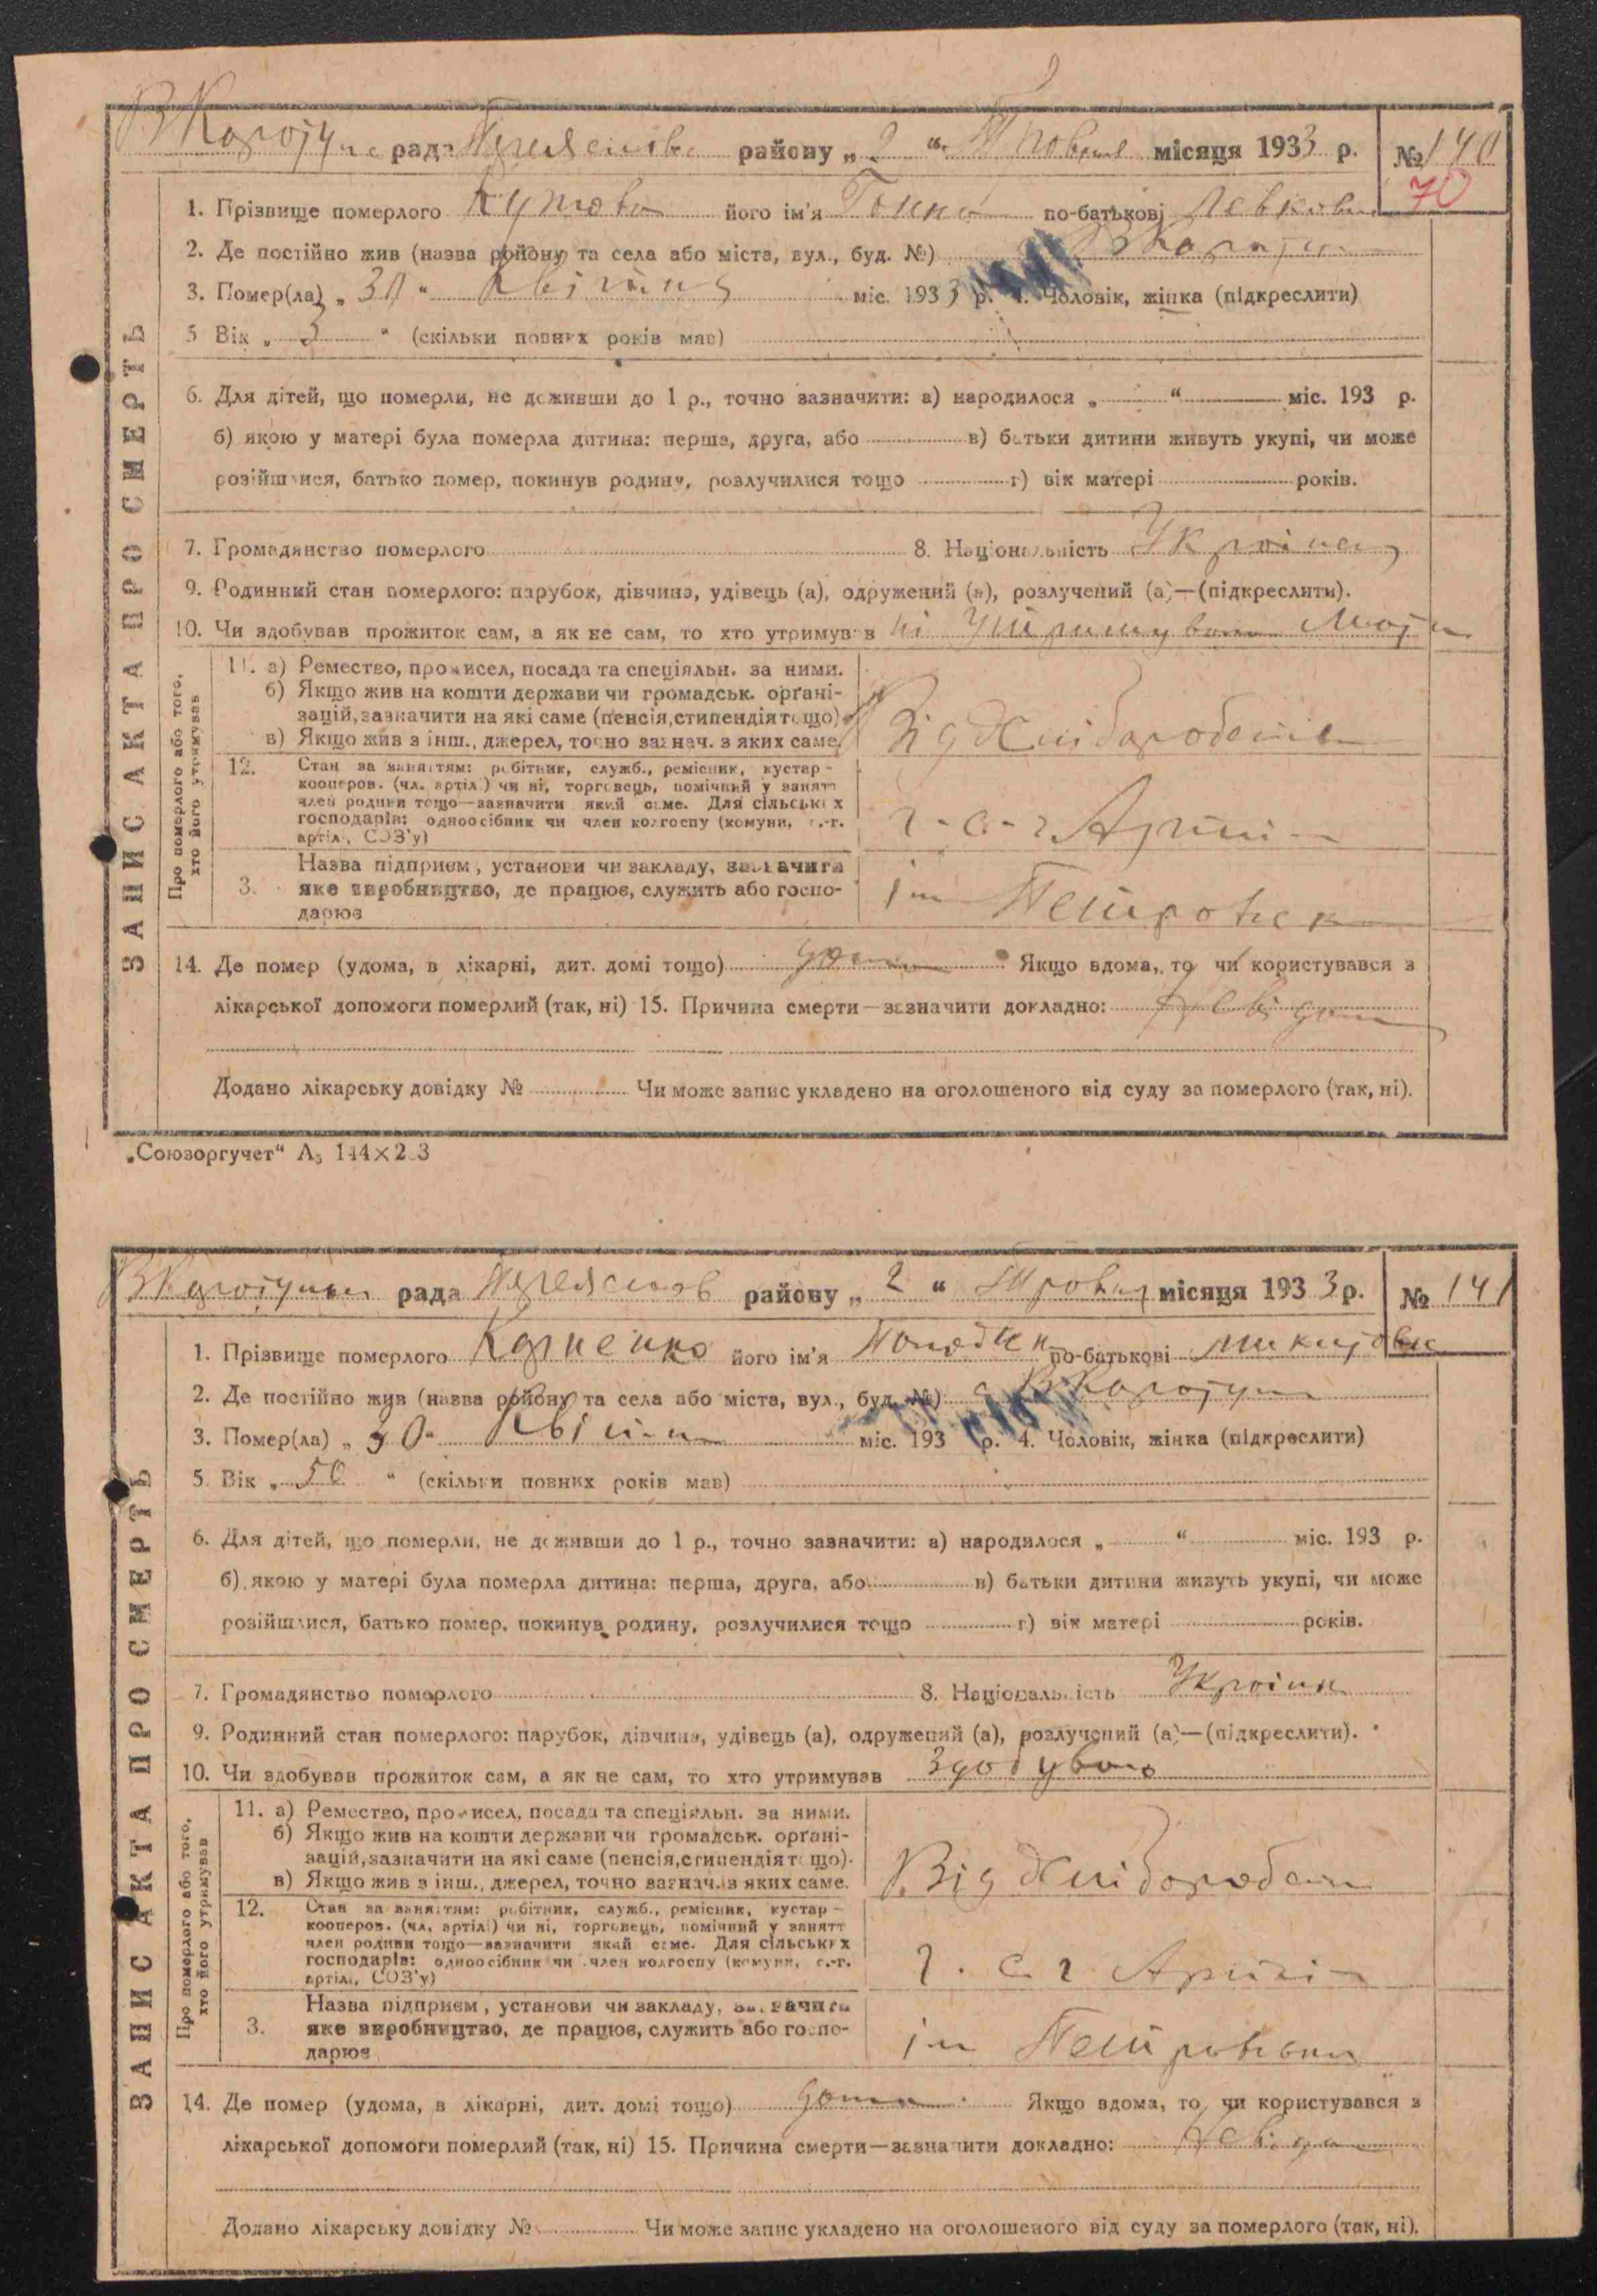 рада району „ 2 “ місяця 1933 р. № 140
70
1. Прізвище померлого Кутова його ім'я по-батькові Левков
2. Де постійно жив (назва району та села або міста, вул., буд. №)
3. Помер(ла) „ 30 “ Квітня міс. 1933 р. 4. Чоловік, жінка (підкреслити)
5 Вік „ 3 “ (скільки повних років мав)
6. Для дітей, що померли, не доживши до 1 р., точно зазначити: а) народилося „ “ міс. 193 р.
б) якою у матері була померла дитина: перша, друга, або в) батьки дитини живуть укупі, чи може
розійшлися, батько помер, покинув родину, розлучилися тощо г) вік матері років.
7. Громадянство померлого 8. Національність Україн
9. Родинний стан померлого: парубок, дівчина, удівець (а), одружений (а), розлучений (а)—(підкреслити).
10. Чи здобував прожиток сам, а як не сам, то хто утримував ні
ЗАПИС АКТА ПРО СМЕРТЬ
Про померлого або того,
хто його утримував
11. а) Ремество, промисел, посада та спеціяльн. за ними.
б) Якщо жив на кошти держави чи громадськ. орґані-
зацій, зазначити на які саме (пенсія, стипендія тощо)
в) Якщо жив з інш., джерел, точно зазнач. з яких саме.
Від
12. Стан за заняттям: робітник, служб., ремісник, кустар-
кооперов. (чл. артілі) чи ні, торговець, помічний у занятт
член родини тощо—зазначити який саме. Для сільських
господарів: одноосібник чи член колгоспу (комуни, с.-г.
артілі, СОЗ'у)
3. Назва підприєм, установи чи закладу, зазначити
яке виробництво, де працює, служить або госпо-
дарює
ім Петровськ
14. Де помер (удома, в лікарні, дит. домі тощо) дома Якщо вдома, то чи користувався з
лікарської допомоги померлий (так, ні) 15. Причина смерти—зазначити докладно:
Додано лікарську довідку № Чи може запис укладено на оголошеного від суду за померлого (так, ні).
„Союзоргучет“ А₅ 144×2 3
рада району „ 2 “ місяця 1933 р. № 141
1. Прізвище померлого його ім'я по-батькові
2. Де постійно жив (назва району та села або міста, вул., буд. №)
3. Помер(ла) „ 30 “ Квітня міс. 193 р. 4. Чоловік, жінка (підкреслити)
5. Вік „ 50 “ (скільки повних років мав)
6. Для дітей, що померли, не доживши до 1 р., точно зазначити: а) народилося „ “ міс. 193 р.
б) якою у матері була померла дитина: перша, друга, або в) батьки дитини живуть укупі, чи може
розійшлися, батько помер, покинув родину, розлучилися тощо г) вік матері років.
7. Громадянство померлого 8. Національність Україн
9. Родинний стан померлого: парубок, дівчина, удівець (а), одружений (а), розлучений (а)—(підкреслити).
10. Чи здобував прожиток сам, а як не сам, то хто утримував здобував
ЗАПИС АКТА ПРО СМЕРТЬ
Про померлого або того,
хто його утримував
11. а) Ремество, промисел, посада та спеціяльн. за ними.
б) Якщо жив на кошти держави чи громадськ. орґані-
зацій, зазначити на які саме (пенсія, стипендія тощо).
в) Якщо жив з інш., джерел, точно зазнач. з яких саме.
Від
12. Стан за заняттям: робітник, служб., ремісник, кустар-
кооперов. (чл. артілі) чи ні, торговець, помічний у занятт
член родини тощо—зазначити який саме. Для сільських
господарів: одноосібник чи член колгоспу (комуни, с.-г.
артілі, СОЗ'у)
3. Назва підприєм, установи чи закладу, зазначити
яке виробництво, де працює, служить або госпо-
дарює
ім
14. Де помер (удома, в лікарні, дит. домі тощо) дома Якщо вдома, то чи користувався з
лікарської допомоги померлий (так, ні) 15. Причина смерти—зазначити докладно:
Додано лікарську довідку № Чи може запис укладено на оголошеного від суду за померлого (так, ні).